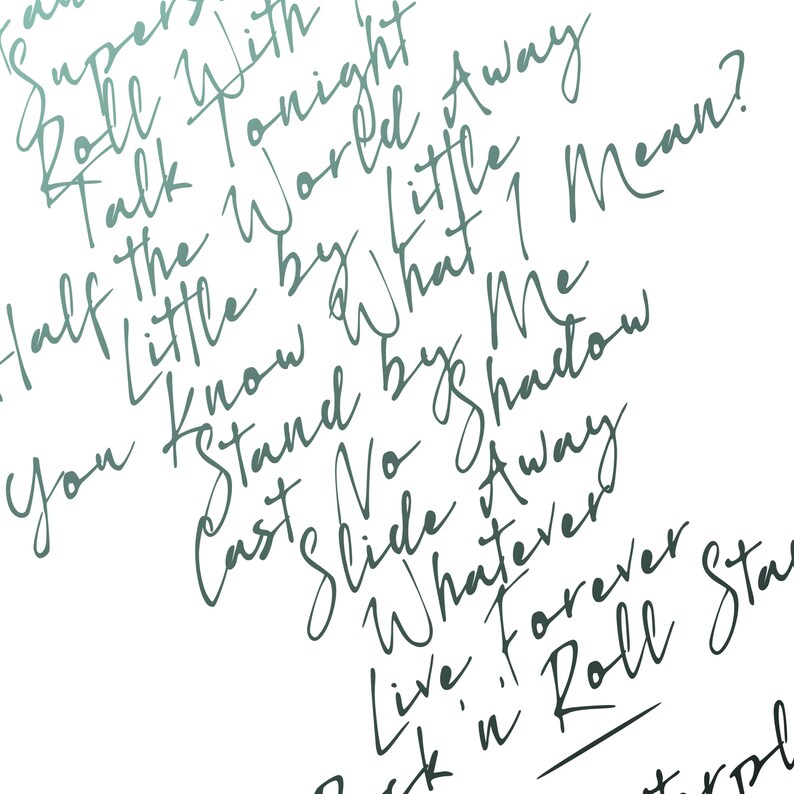 Roll With
Talk Tonight
Half the World Away
Little by Little
You Know What I Mean?
Stand by Me
Cast No Shadow
Slide Away
Whatever
Live Forever
'n' Roll